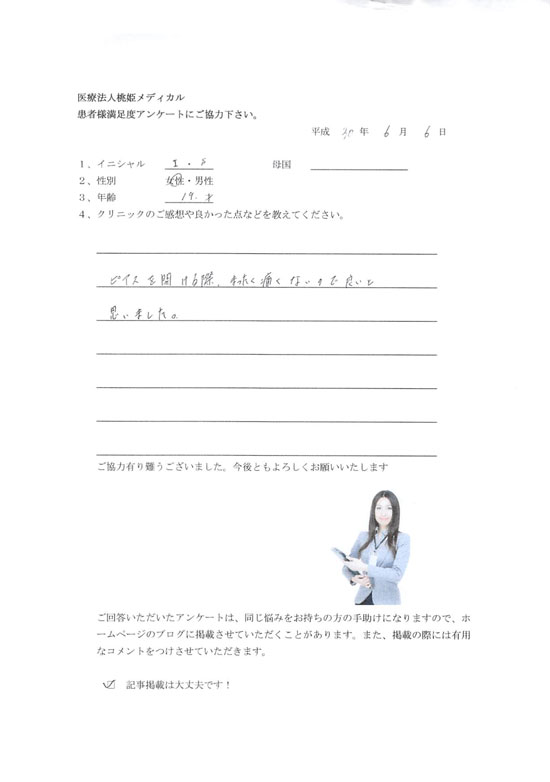 医療法人桃姫メディカル
患者様満足度アンケートにご協力下さい。
平成 年 6 月 6 日
1、イニシャル I・S 母国
2、性別 女性・男性
3、年齢 19.才
4、クリニックのご感想や良かった点などを教えてください。
ピアスを開ける際、まったく痛くないので良いと
思いました。
ご協力有り難うございました。今後ともよろしくお願いいたします
ご回答いただいたアンケートは、同じ悩みをお持ちの方の手助けになりますので、ホ
ームページのブログに掲載させていただくことがあります。また、掲載の際には有用
なコメントをつけさせていただきます。
☑ 記事掲載は大丈夫です！